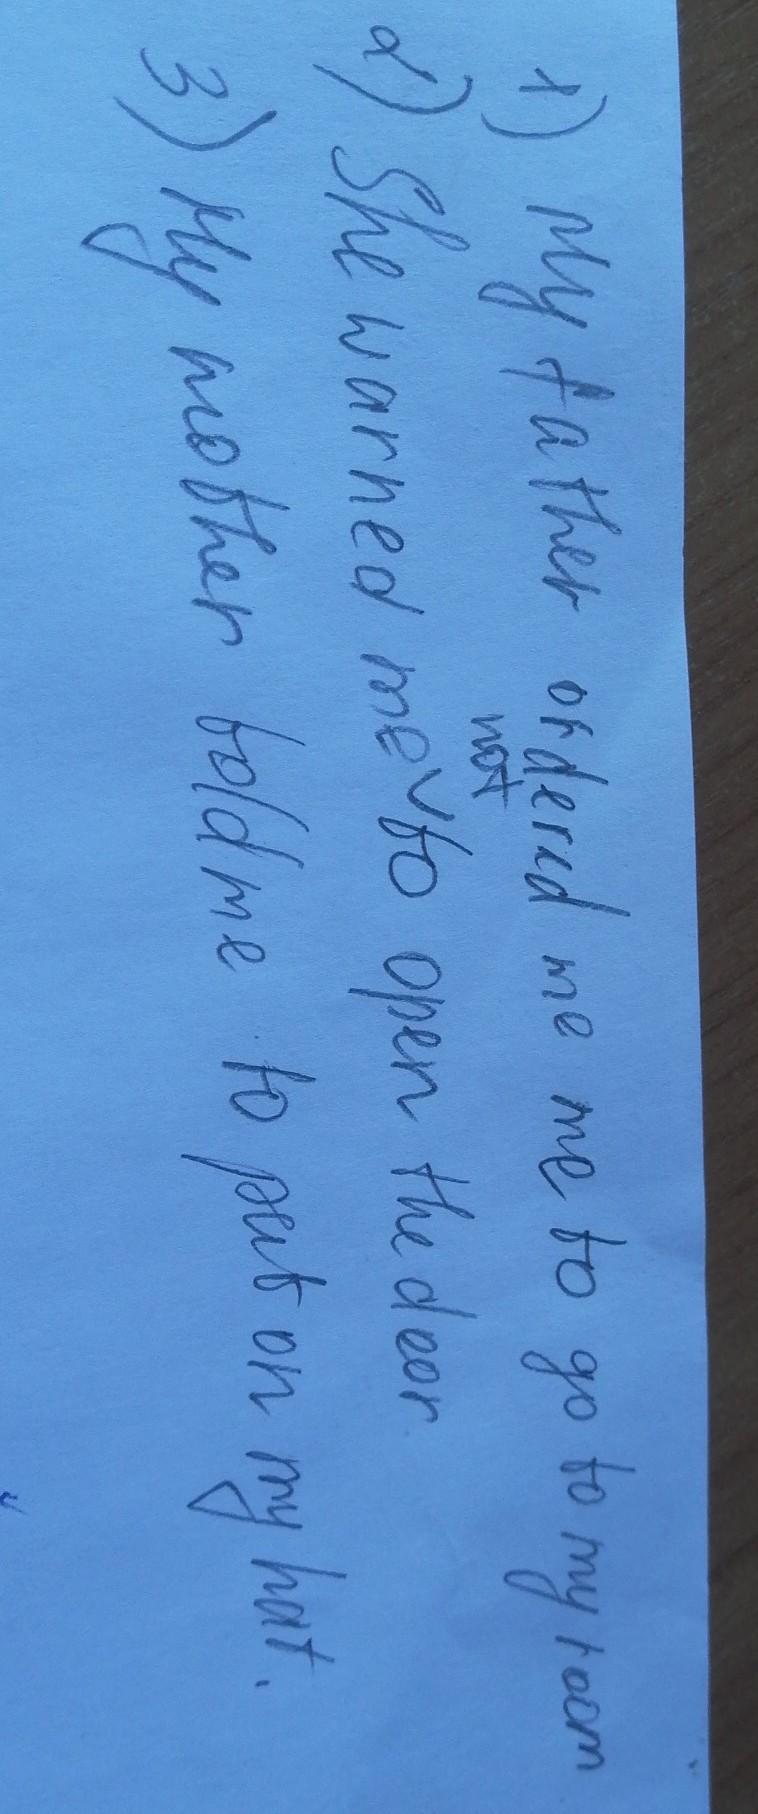 1) My father ordered me me to go to my room
2) She warned me not to open the door
3) My mother told me to put on my hat.